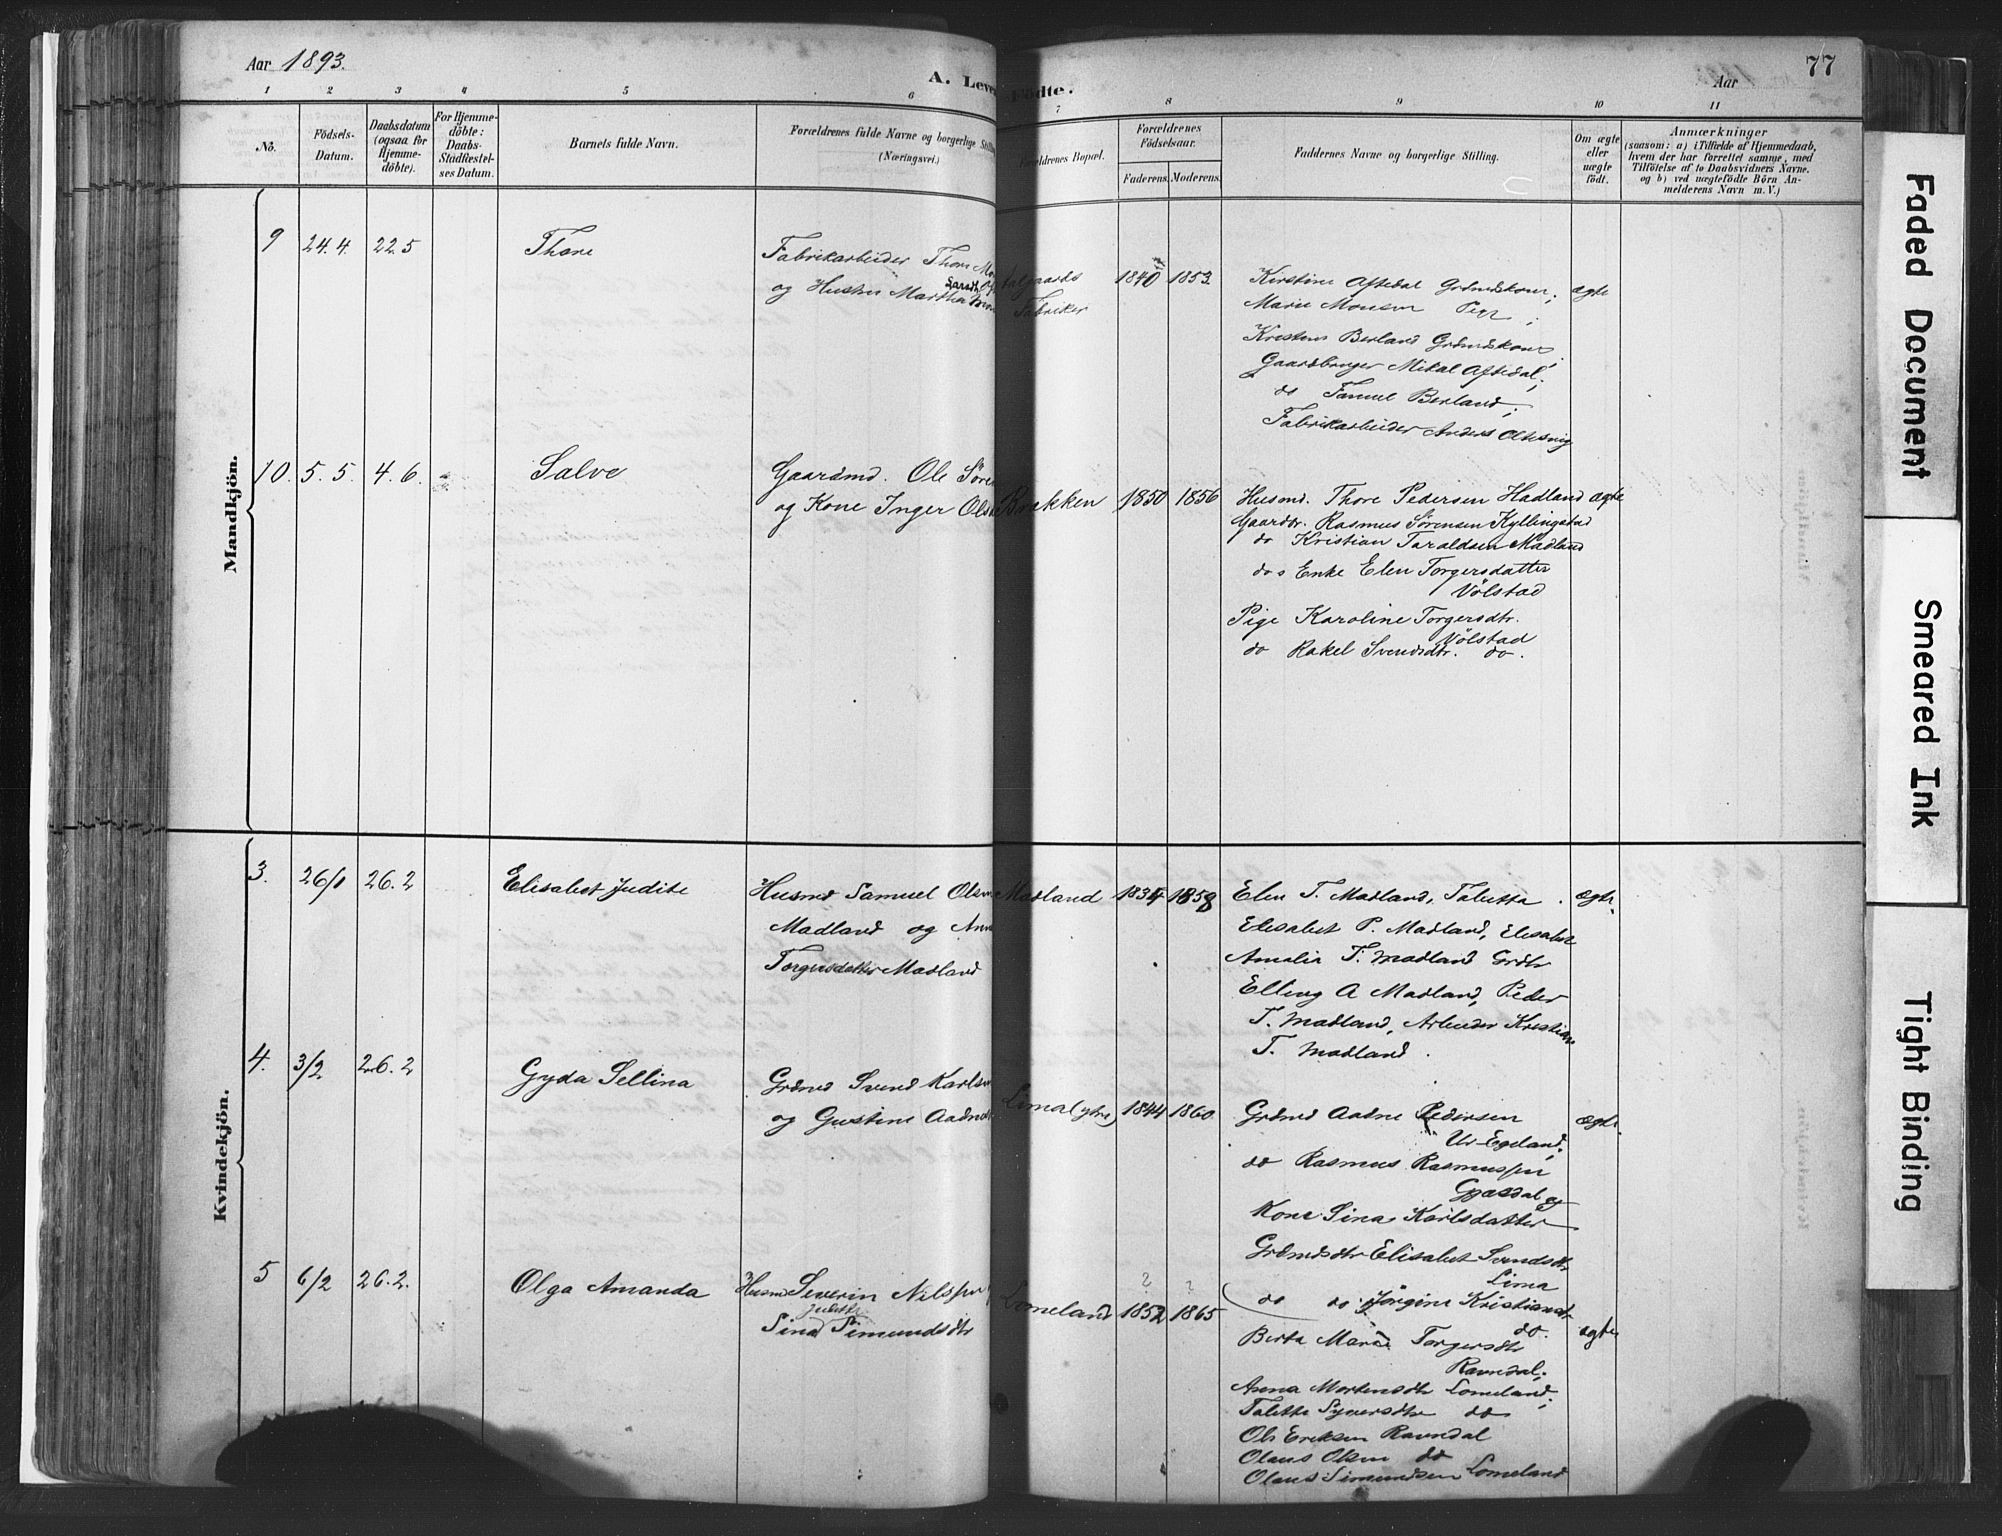 Aar 1893.
A. Leve
Födte.
Aar
77
1 2 3 4 5 6 7 8 9 10 11
No.
Födsels-
Datum.
Daabsdatum
(ogsaa for
Hjemme-
döbte).
For Hjemme-
döbte:
Daabs-
Stadfæstel-
ses Datum.
Barnets fulde Navn.
Forældrenes fulde Navne og borgerlige Stilling
(Næringsvei.)
Forældrenes Bopæl.
Forældrenes
Fødselsaar.
Faderens. Moderens.
Faddernes Navne og borgerlige Stilling.
Om ægte
eller
uægte
født.
Anmærkninger
(saasom: a) i Tilfælde af Hjemmedaab,
hvem der har forrettet samme, med
Tilföielse af to Daabsvidners Navne.
og b) ved uægtefödte Börn An-
melderens Navn m. V.)
Mandkjön.
9 24.4. 22.5 Thore
Fabrikarbeider Thore
og Hustru Martha
Aalgaards
Fabriker
1840 1853.
Kirstine Aftedal Grdmdskone; ægte
Marie Monsen Pige;
Kristens Berland Grdmdskone
Gaardbruger Mikal Aftedal;
do Samuel Berland;
Fabrikarbeider Anders Oltesvig
10. 5.5. 4.6. Salve
Gaardmd. Ole Sören
og Kone Inger Ols
Brekken 1850 1856
Husmd. Thore Pedersen Hadland ægte
Gaardbr. Rasmus Sörensen Kyllingstad
do Kristian Taraldsen Madland
do s Enke Elen Torgersdatter
Völstad
Pige Karoline Torgersdtr.
Völstad
do Rakel Svendsdtr. do.
Kvindekjön.
3. 26/1 26.2 Elisabet Judite
Husmd Samuel Olsen
Madland og Ann
Torgersdatter Madland
Madland 1834 1858
Elen T. Madland, Taletta. ægte.
Elisabet P. Madland, Elisabet
Amalie T. Madland Grdtr
Elling A Madland, Peder
T. Madland, Arbeider Kristian
T. Madland.
4. 3/2 26.2 Gyda Sellina
Grdmd Svend Karlsen
og Gustine Aadnedtr
Lima (ytre) 1844 1860
Grdmd Aadne Pedersen ægte.
Ur-Egeland;
do Rasmus Rasmussen
Gjæsdal og
Kone Sina Karlsdatter
Grdmdsdtr Elisabet Svendsdtr
Lima
do do Jörgine Kristiansdtr
do.
5 6/2 26.2. Olga Amanda
Husmd Severin Nilssen
Judithe
Sina Simundsdtr
Lomeland 1852 1865
Berta Marie Torgersdtr ægte
Ravndal;
Anna Mortensdtr Lomeland;
Taletta Syversdtr do
Ole Eriksen Ravndal
Olaus Olsen do
Olaus Simundsen Lomeland
Faded Document
Smeared Ink
Tight Binding